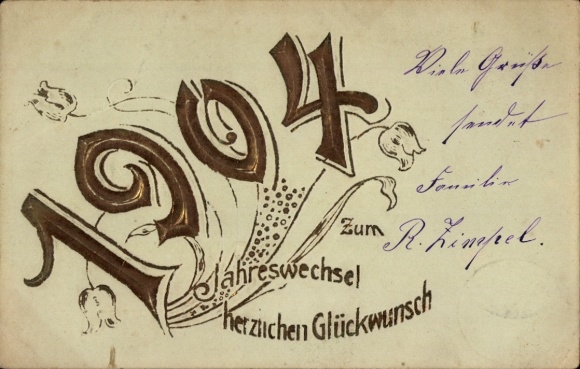 1904
Zum
Jahreswechsel
herzlichen Glückwunsch
Viele Grüße
sendet
Familie
R. Zimpel.